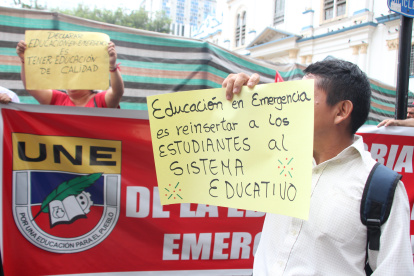 DECLARAR
EDUCACIÓN EN EMERGENCIA
ES
TENER EDUCACIÓN
DE CALIDAD
EDUCACIÓN EN EMERGENCIA
ES REINSERTAR A LOS
ESTUDIANTES AL
SISTEMA
EDUCATIVO
UNE
POR UNA EDUCACIÓN PARA EL PUEBLO
DE LA
EMERG